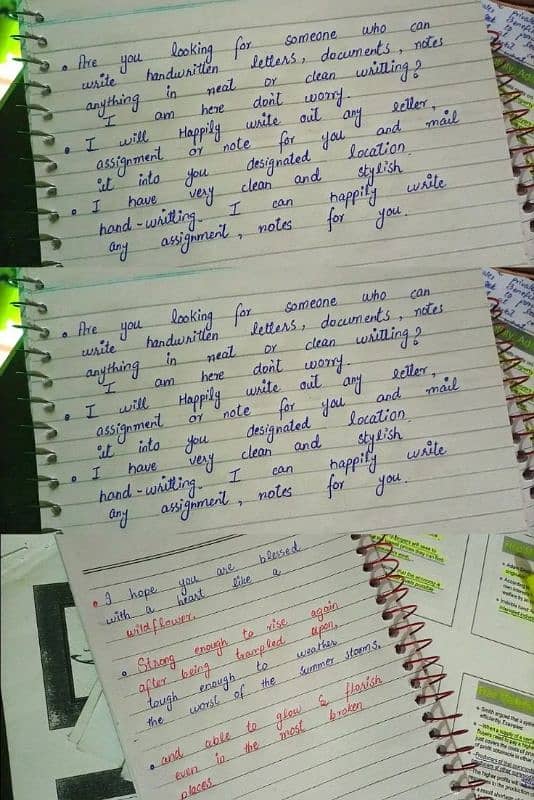 • Are you looking for someone who can
write handwritten letters, documents, notes
anything in neat or clean writting?
I am here don't worry.
• I will Happily write out any letter,
assignment or note for you and mail
it into you designated location.
• I have very clean and stylish
hand-writting. I can happily write
any assignment, notes for you.
• Are you looking for someone who can
write handwritten letters, documents, notes
anything in neat or clean writting?
I am here don't worry.
• I will Happily write out any letter,
assignment or note for you and mail
it into you designated location.
• I have very clean and stylish
hand-writting. I can happily write
any assignment, notes for you.
• I hope you are blessed
with a heart like a
wildflower.
• Strong enough to rise again
after being trampled upon,
tough enough to weather
the worst of the summer storms,
• and able to glow & florish
even in the most broken
places.